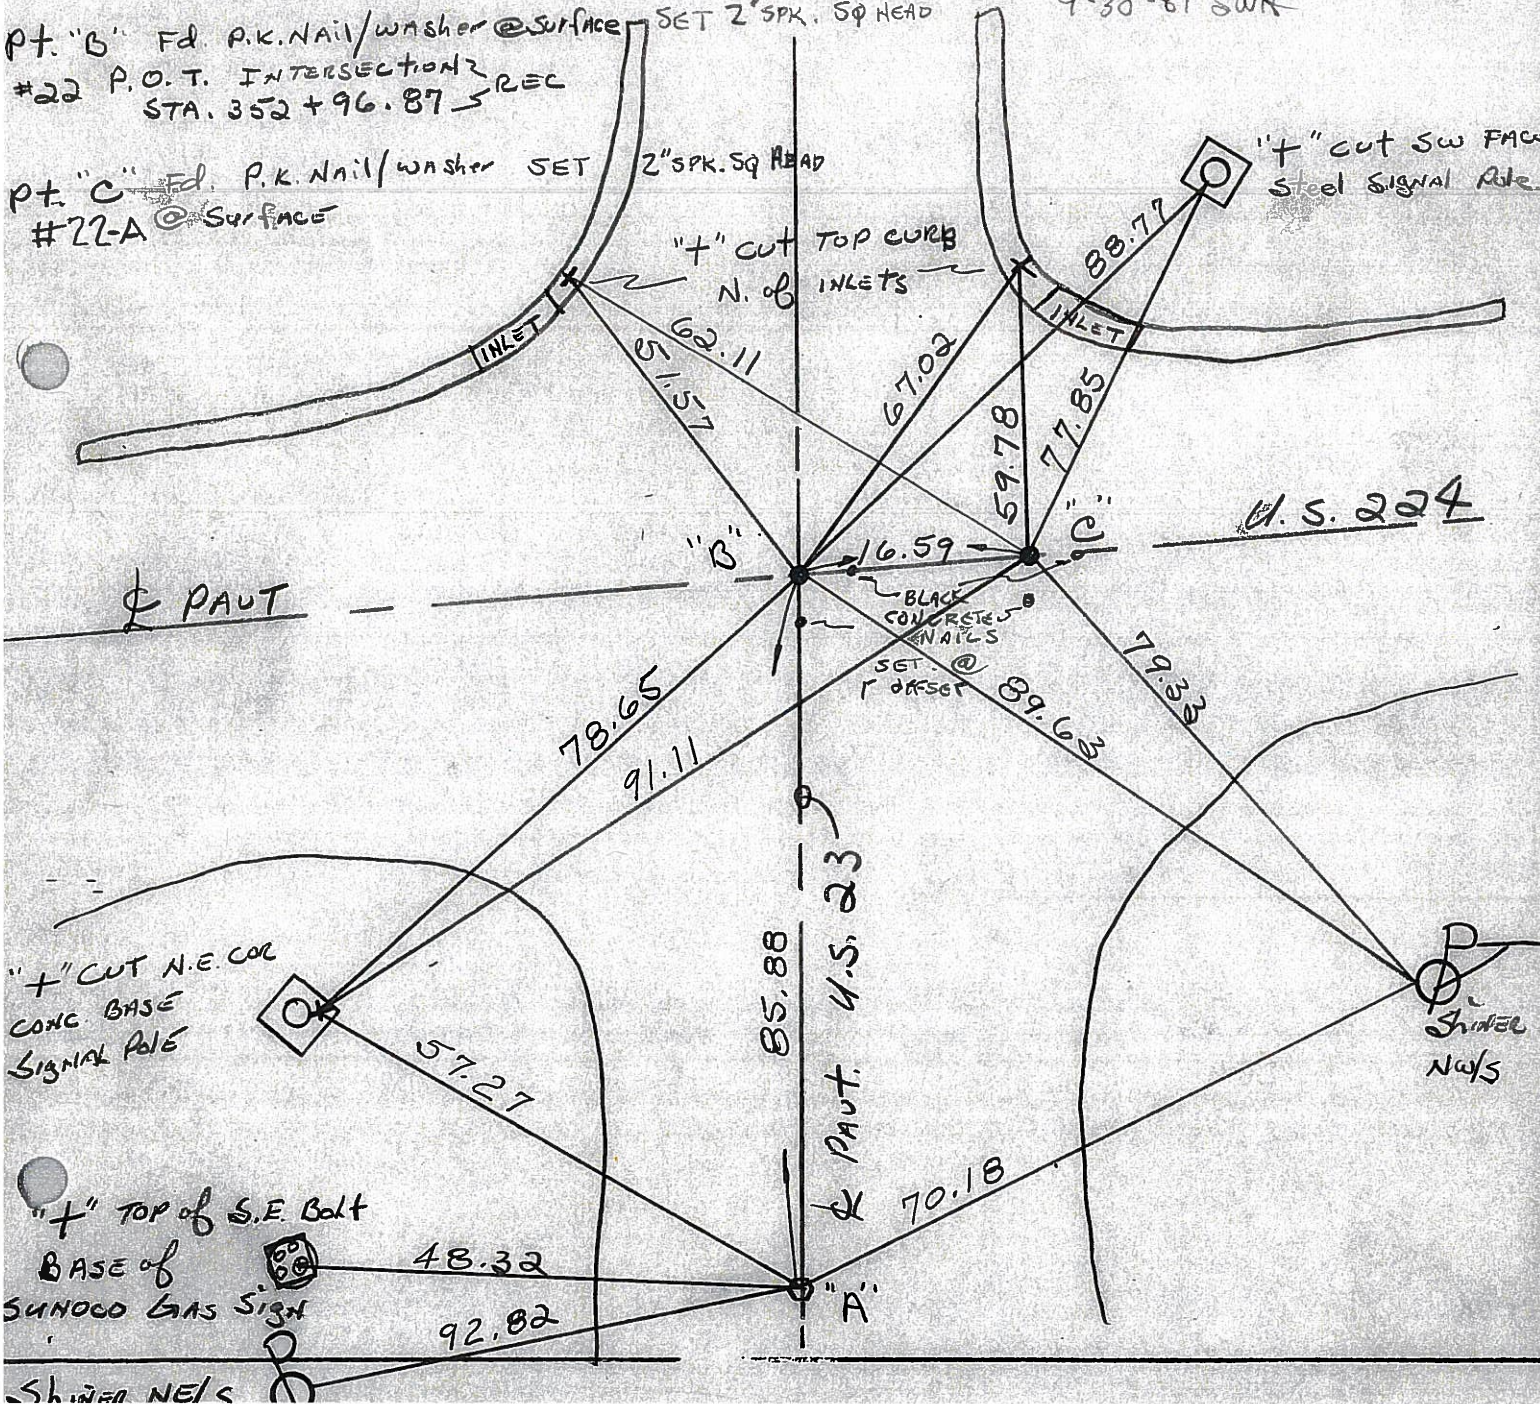 Pt. "B" Fd. P.K. Nail/washer @ Surface SET 2" SPK. SQ HEAD
#22 P.O.T. INTERSECTION
STA. 352 + 96.87 REC
Pt. "C" Fd. P.K. Nail/washer SET 2" SPK. SQ HEAD
#22-A @ SurfACE
"+" cut SW FACE
Steel SIGNAL Pole
"+" cut TOP CURB
N. of INLETS
INLET
INLET
88.77
62.11
51.57
67.02
59.78
77.85
"C"
U.S. 224
"B"
16.59
℄ PAVT
BLACK
CONCRETE
NAILS
SET @
1' OFFSET
79.33
89.63
78.65
91.11
U.S. 23
85.88
℄ PAVT.
"+" CUT N.E. COR
CONC. BASE
SIGNAL POLE
57.27
Shiner
NW/S
70.18
"+" TOP of S.E. Bolt
BASE of
SUNOCO GAS SigN
48.32
"A"
92.82
ShiNER NE/S